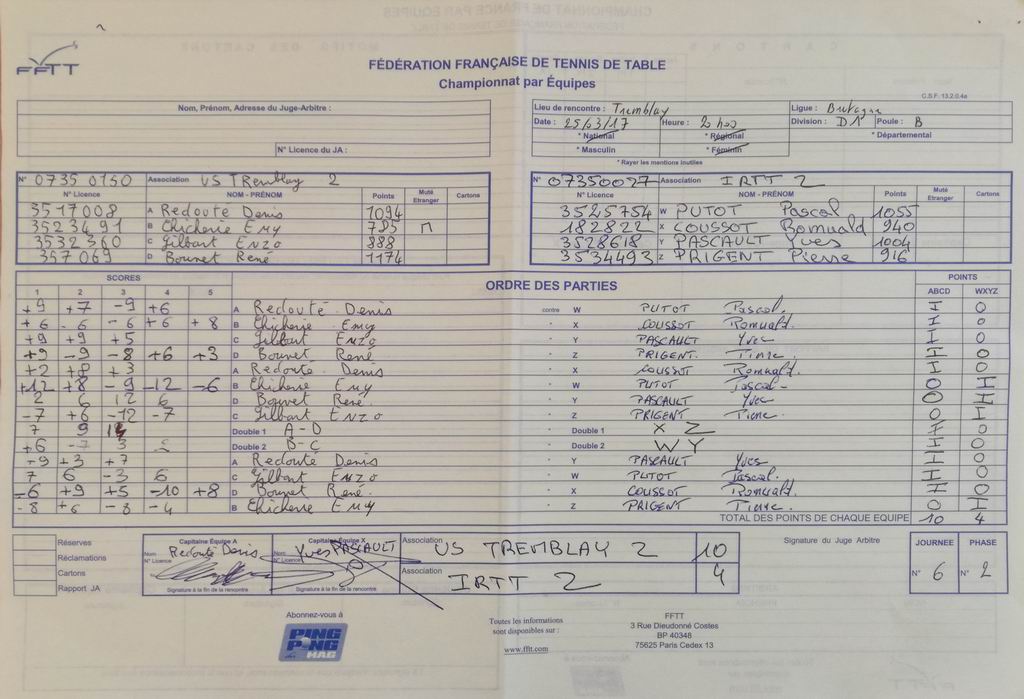 FFTT
FÉDÉRATION FRANÇAISE DE TENNIS DE TABLE
Championnat par Équipes
C.S.F. 13.2.0.4a
Nom, Prénom, Adresse du Juge-Arbitre :
N° Licence du JA :
Lieu de rencontre : Tremblay Ligue : Bretagne
Date : 25/03/17 Heure : 20h00 Division : D1 Poule : B
* National * Régional * Départemental
* Masculin * Féminin
* Rayer les mentions inutiles
N° 0735 0150 Association US TRemblay 2
N° Licence NOM - PRÉNOM Points Muté Etranger Cartons
3517008 A Redouté Denis 1094
3523491 B Chicherie Emy 785 M
3532360 C Gilbart Enzo 888
357069 D Bournet René 1174
N° 07350027 Association IRTT 2
N° Licence NOM - PRÉNOM Points Muté Etranger Cartons
3525754 W PUTOT Pascal 1055
182822 X COUSSOT Romuald 940
3528618 Y PASCAULT Yves 1004
3534493 Z PRIGENT Pierre 916
SCORES ORDRE DES PARTIES POINTS
1 2 3 4 5 ABCD WXYZ
+9 +7 -9 +6 A Redouté Denis contre W PUTOT Pascal 1 0
+6 -6 -6 +6 +8 B Chicherie Emy " X COUSSOT Romuald 1 0
+9 +9 +5 C Gilbart Enzo " Y PASCAULT Yves 1 0
+9 -9 -8 +6 +3 D Bournet René " Z PRIGENT Pierre 1 0
+2 +8 +3 A Redouté Denis " X COUSSOT Romuald 1 0
+12 +8 -9 -12 -6 B Chicherie Emy " W PUTOT Pascal 0 1
2 6 12 6 D Bournet René " Y PASCAULT Yves 0 1
-7 +6 -12 -7 C Gilbart Enzo " Z PRIGENT Pierre 0 1
7 9 Double 1 A-D " Double 1 X Z 1 0
+6 -7 3 Double 2 B-C " Double 2 W Y 1 0
-9 +3 +7 A Redouté Denis " Y PASCAULT Yves 1 0
7 6 -3 6 C Gilbart Enzo " W PUTOT Pascal 1 0
-6 +9 +5 -10 +8 D Bournet René " X COUSSOT Romuald 1 0
-8 +6 -8 -4 B Chicherie Emy " Z PRIGENT Pierre 0 1
TOTAL DES POINTS DE CHAQUE EQUIPE 10 4
Réserves
Réclamations
Cartons
Rapport JA
Capitaine Équipe A
Nom Redouté Denis
N° Licence
Signature à la fin de la rencontre
Capitaine Équipe X
Nom Yves PASCAULT
N° Licence
Signature à la fin de la rencontre
Association US TREMBLAY 2 10
Association IRTT 2 4
Signature du Juge Arbitre
JOURNEE PHASE
N° 6 N° 2
Abonnez-vous à
PING PONG MAG
Toutes les informations
sont disponibles sur :
www.fftt.com
FFTT
3 Rue Dieudonné Costes
BP 40348
75625 Paris Cedex 13